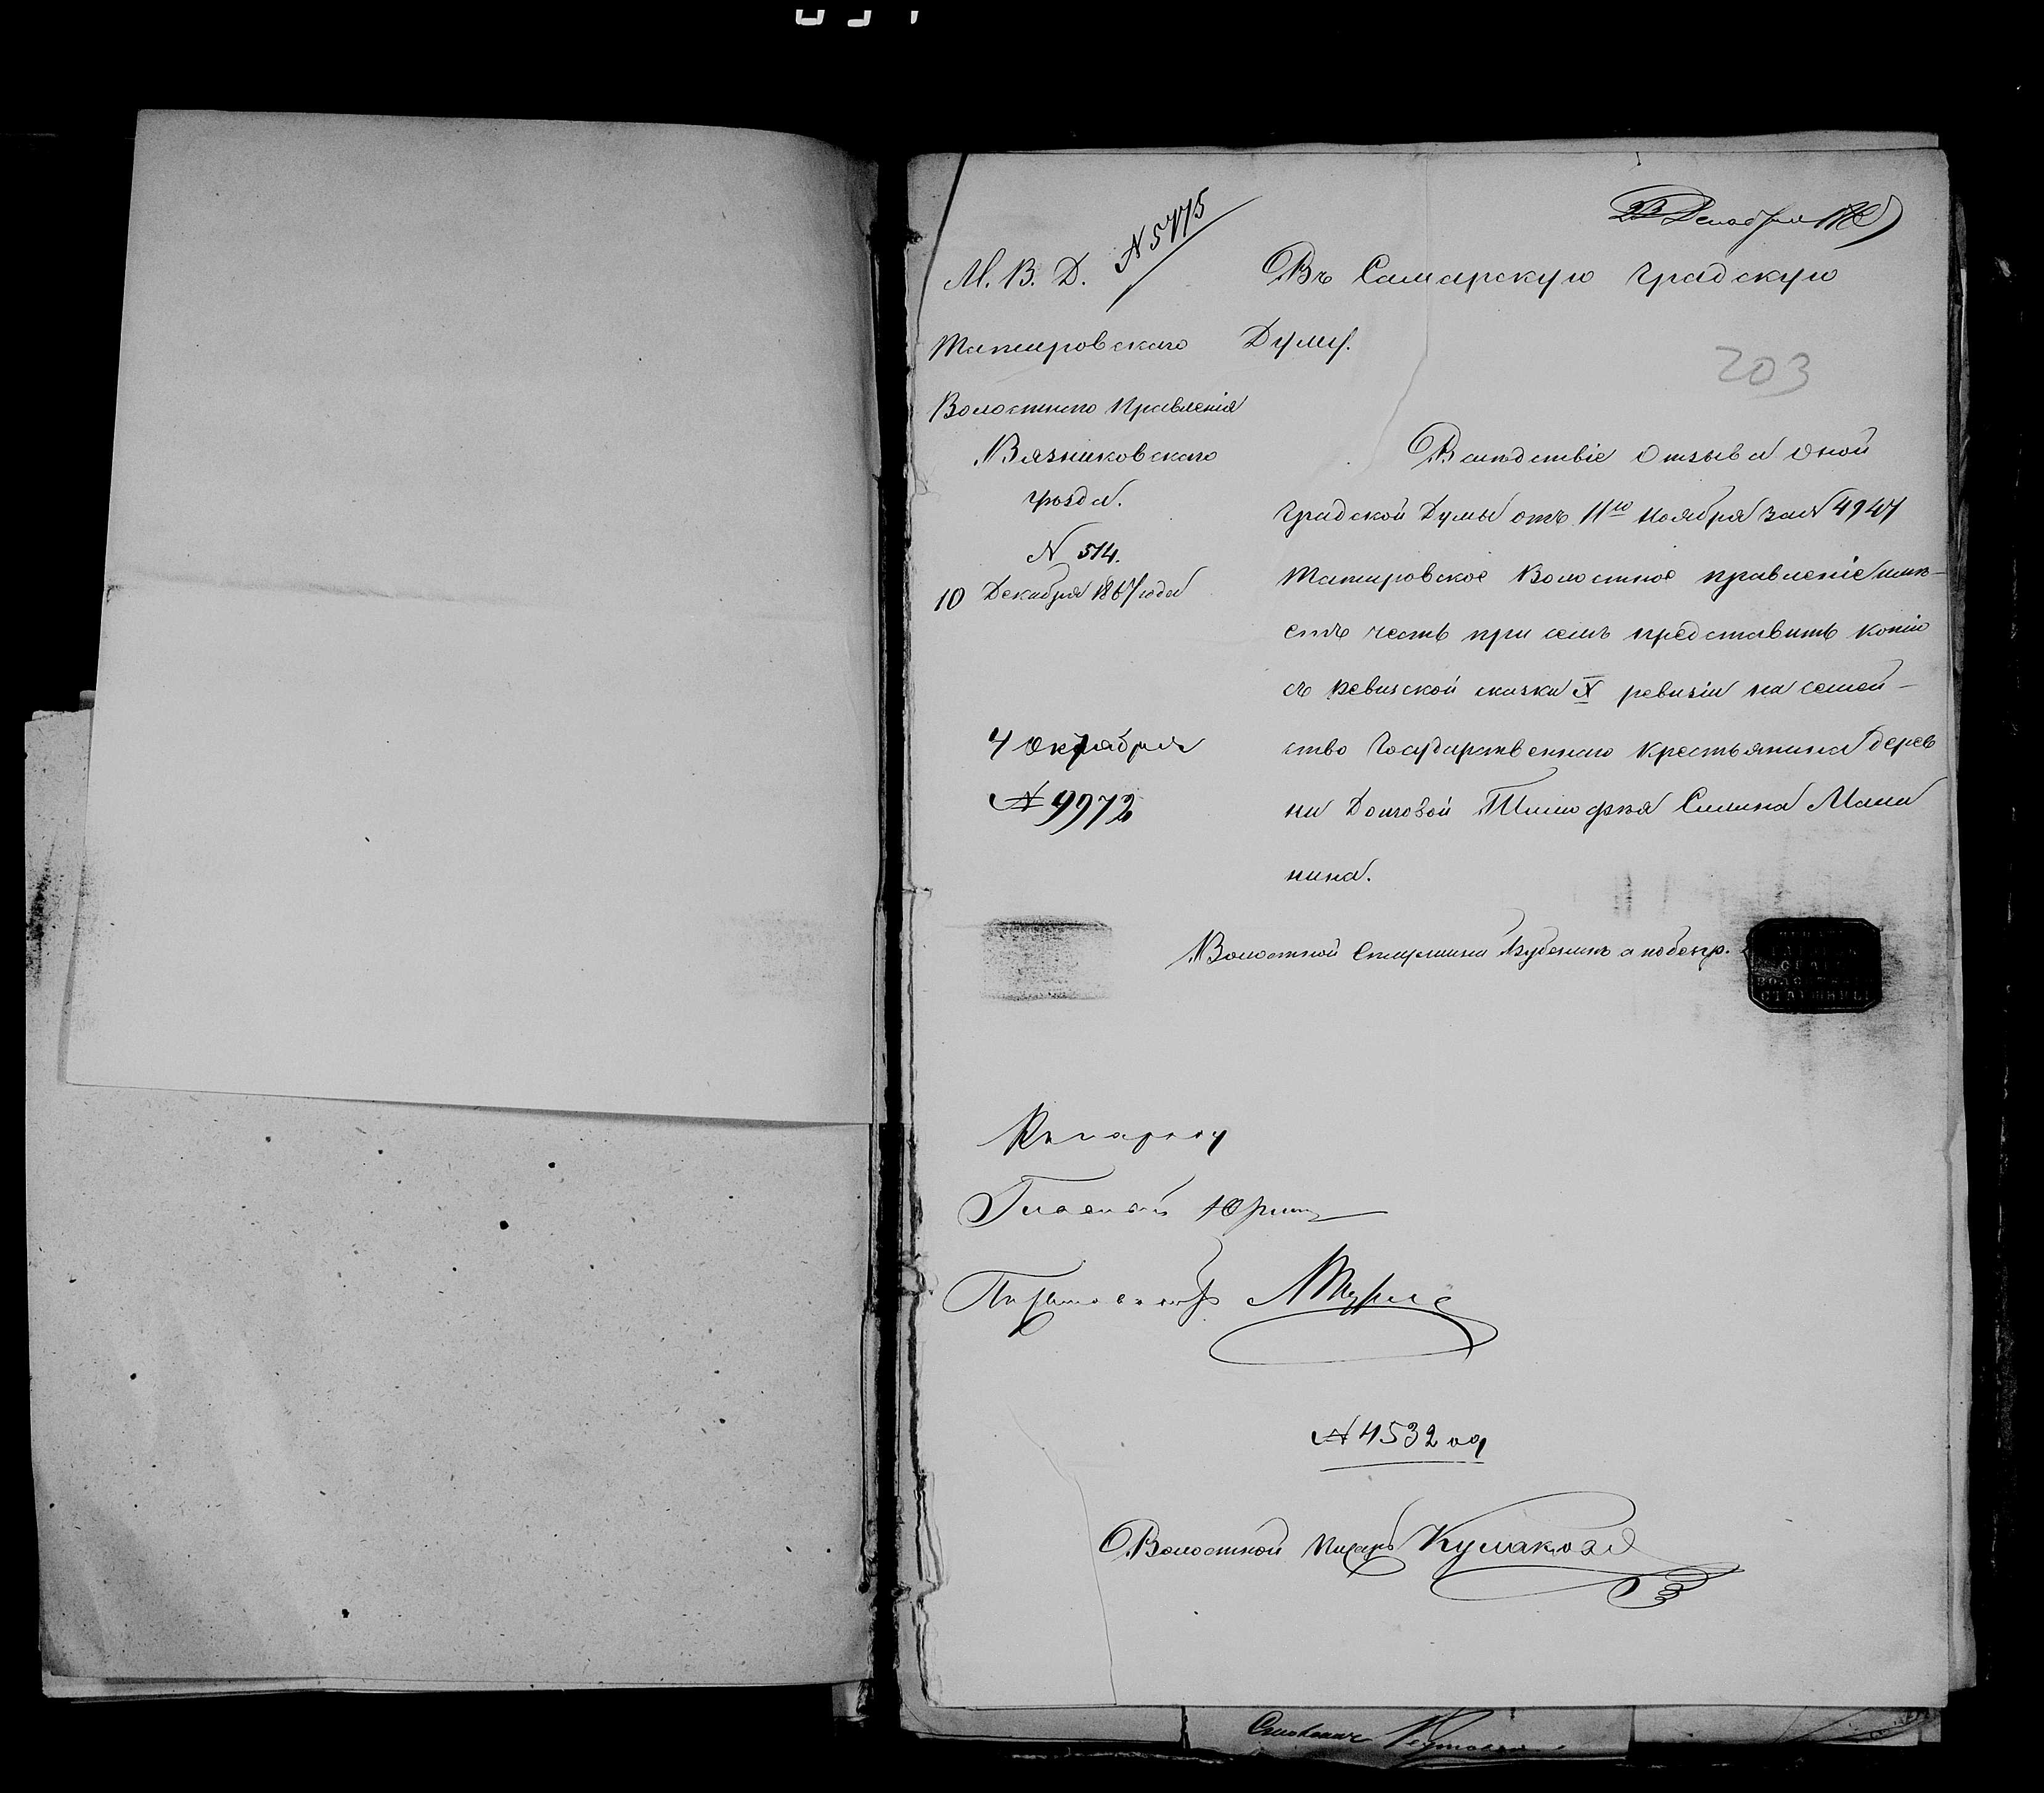 Декабря
№ 5775
М. В. Д.
Татаровскаго
Волостнаго Правленія
Вязниковскаго
уѣзда.
№ 514.
10 Декабря 1867 года
4 Октября
№ 9972
Въ Самарскую Градскую
Думу.
203
Вслѣдствіе отзыва оной
Градской Думы отъ 11го Ноября за № 4947
Татаровское Волостное правленіе имѣ-
етъ честь при семъ представить копію
съ ревизской сказки X ревизіи на семей-
ство Государственнаго крестьянина дерев
ни Долговой Тимофѣя Силина Мани
нина.
Волостной Старшина
ВОЛОСТ
СТАРШИНЫ
Гласный
№ 4532
Волостной Писарь Кулаковъ